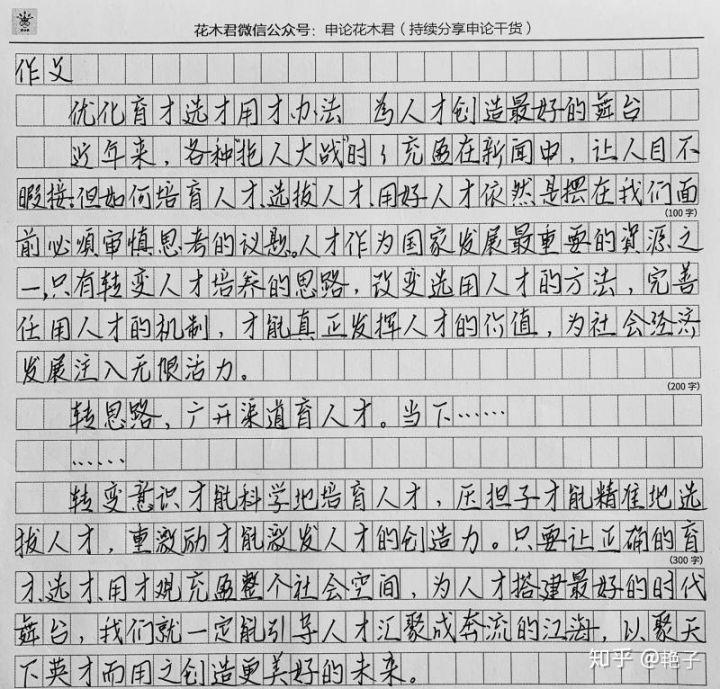 花木君微信公众号：申论花木君（持续分享申论干货）
作文
优化育才选才用才办法 为人才创造最好的舞台
近年来，各种"抢人大战"时々充盈在新闻中，让人目不
暇接。但如何培育人才、选拔人才、用好人才依然是摆在我们面
(100 字)
前必须审慎思考的议题。人才作为国家发展最重要的资源之
一，只有转变人才培养的思路，改变选用人才的方法，完善
任用人才的机制，才能真正发挥人才的价值，为社会经济
发展注入无限活力。
(200 字)
转思路，广开渠道育人才。当下……
……
转变意识才能科学地培育人才，压担子才能精准地选
拔人才，重激励才能激发人才的创造力。只要让正确的育
(300 字)
才、选才、用才观充盈整个社会空间，为人才搭建最好的时代
舞台，我们就一定能引导人才汇聚成奔流的江海，以聚天
下英才而用之创造更美好的未来。
知乎 @艳子